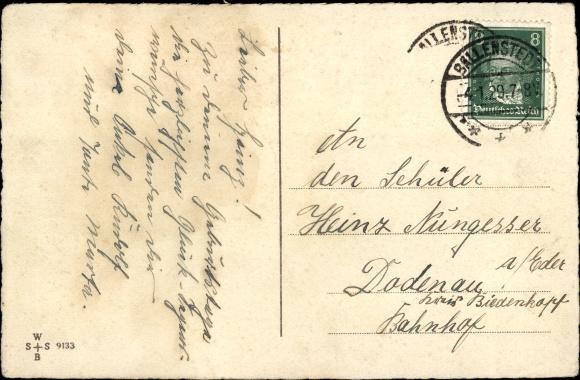 Lieber Heinz!
Zu deinem Geburtstage
die herzlichsten Glück-
wünsche senden dir
deine Onkel Rudolf
und Tante Marta.
W
S + S 9133
B
BALLENSTEDT
4.1.29.7-8V
8
Deutsches Reich
An
den Schüler
Heinz Nungesser
Dodenau a/Eder
Kreis Biedenkopf
Bahnhof